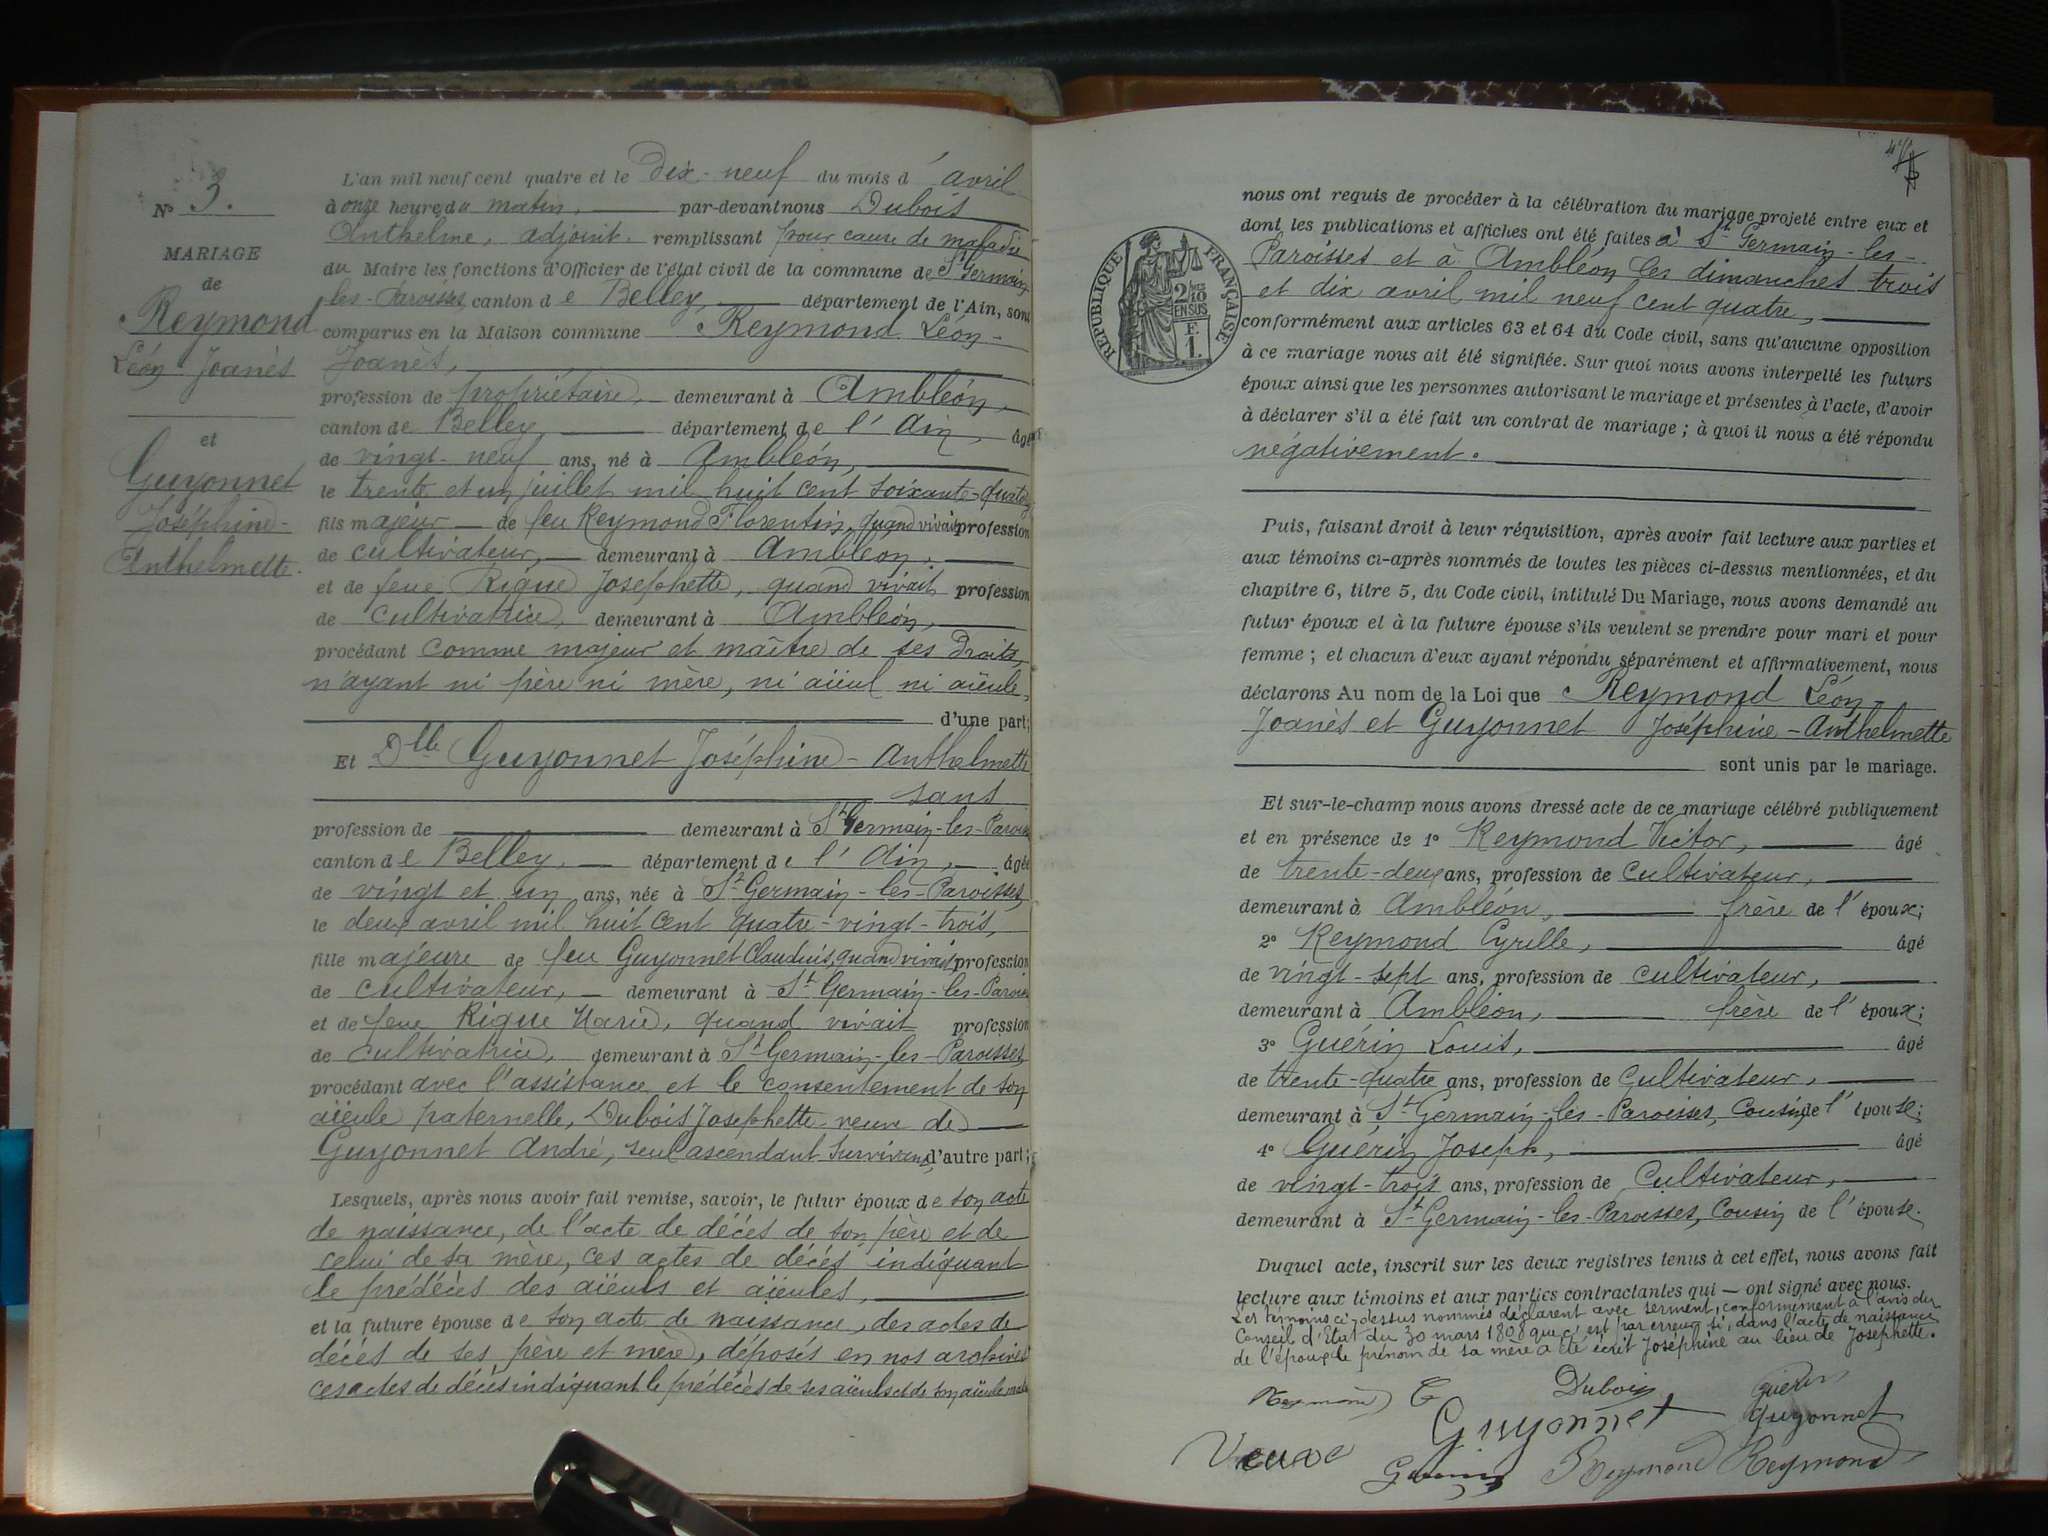 N° 3.
MARIAGE
de
Reymond
Léon Joanès
et
Guyonnet
Joséphine-
Anthelmette.
L'an mil neuf cent quatre et le Dix-neuf du mois d'avril
à onze heure du matin, par-devant nous Dubois
Anthelme, adjoint remplissant pour cause de maladie
du Maire les fonctions d'Officier de l'état civil de la commune de St Germain
les-Paroisses, canton de Belley, département de l'Ain, sont
comparus en la Maison commune Reymond Léon-
Joanès,
profession de propriétaire, demeurant à Ambléon,
canton de Belley, département de l'Ain, âgé
de vingt-neuf ans, né à Ambléon,
le trente et un juillet mil huit cent soixante-quatorze
fils majeur de feu Reymond Florentin, quand vivait profession
de cultivateur, demeurant à Ambléon,
et de feue Rigue Josephette, quand vivait profession
de cultivatrice, demeurant à Ambléon,
procédant comme majeur et maître de ses droits,
n'ayant ni père ni mère, ni aïeul ni aïeule,
d'une part;
Et Dlle Guyonnet Joséphine-Anthelmette
sans
profession de demeurant à St Germain-les-Paroisses
canton de Belley, département de l'Ain, âgée
de vingt et un ans, née à St Germain-les-Paroisses,
le deux avril mil huit cent quatre-vingt-trois,
fille majeure de feu Guyonnet Claudius, quand vivait profession
de cultivateur, demeurant à St Germain-les-Paroisses
et de feue Rigue Marie, quand vivait profession
de cultivatrice, demeurant à St Germain-les-Paroisses,
procédant avec l'assistance et le consentement de son
aïeule paternelle, Dubois Josephette veuve de
Guyonnet André, seul ascendant survivant, d'autre part;
Lesquels, après nous avoir fait remise, savoir, le futur époux de son acte
de naissance, de l'acte de décès de son père et de
celui de sa mère, ces actes de décès indiquant
le prédécès des aïeuls et aïeules,
et la future épouse de son acte de naissance, des actes de
décès de ses père et mère, déposés en nos archives
ces actes de décès indiquant le prédécès de ses aïeuls et de son aïeule
nous ont requis de procéder à la célébration du mariage projeté entre eux et
dont les publications et affiches ont été faites à St Germain-les-
Paroisses et à Ambléon les dimanches trois
et dix avril mil neuf cent quatre,
RÉPUBLIQUE FRANÇAISE
2/10
EN SUS
F.
1.
conformément aux articles 63 et 64 du Code civil, sans qu'aucune opposition
à ce mariage nous ait été signifiée. Sur quoi nous avons interpellé les futurs
époux ainsi que les personnes autorisant le mariage et présentes à l'acte, d'avoir
à déclarer s'il a été fait un contrat de mariage ; à quoi il nous a été répondu
négativement.
Puis, faisant droit à leur réquisition, après avoir fait lecture aux parties et
aux témoins ci-après nommés de toutes les pièces ci-dessus mentionnées, et du
chapitre 6, titre 5, du Code civil, intitulé Du Mariage, nous avons demandé au
futur époux et à la future épouse s'ils veulent se prendre pour mari et pour
femme ; et chacun d'eux ayant répondu séparément et affirmativement, nous
déclarons Au nom de la Loi que Reymond Léon-
Joanès et Guyonnet Joséphine-Anthelmette
sont unis par le mariage.
Et sur-le-champ nous avons dressé acte de ce mariage célébré publiquement
et en présence de 1° Reymond Victor, âgé
de trente-deux ans, profession de cultivateur,
demeurant à Ambléon, frère de l'époux;
2° Reymond Cyrille, âgé
de vingt-sept ans, profession de cultivateur,
demeurant à Ambléon, frère de l'époux;
3° Guérin Louis, âgé
de trente-quatre ans, profession de cultivateur,
demeurant à St Germain-les-Paroisses, cousin de l'épouse;
4° Guérin Joseph, âgé
de vingt-trois ans, profession de cultivateur,
demeurant à St Germain-les-Paroisses, cousin de l'épouse.
Duquel acte, inscrit sur les deux registres tenus à cet effet, nous avons fait
lecture aux témoins et aux parties contractantes qui ont signé avec nous.
Les témoins ci-dessus nommés déclarent avec serment, conformément à l'avis du
Conseil d'Etat du 30 mars 1808 que c'est par erreur si, dans l'acte de naissance
de l'époux le prénom de sa mère a été écrit Joséphine au lieu de Josephette.
Reymond C Dubois Guérin
Guyonnet Guyonnet
Veuve Guérin Reymond Reymond